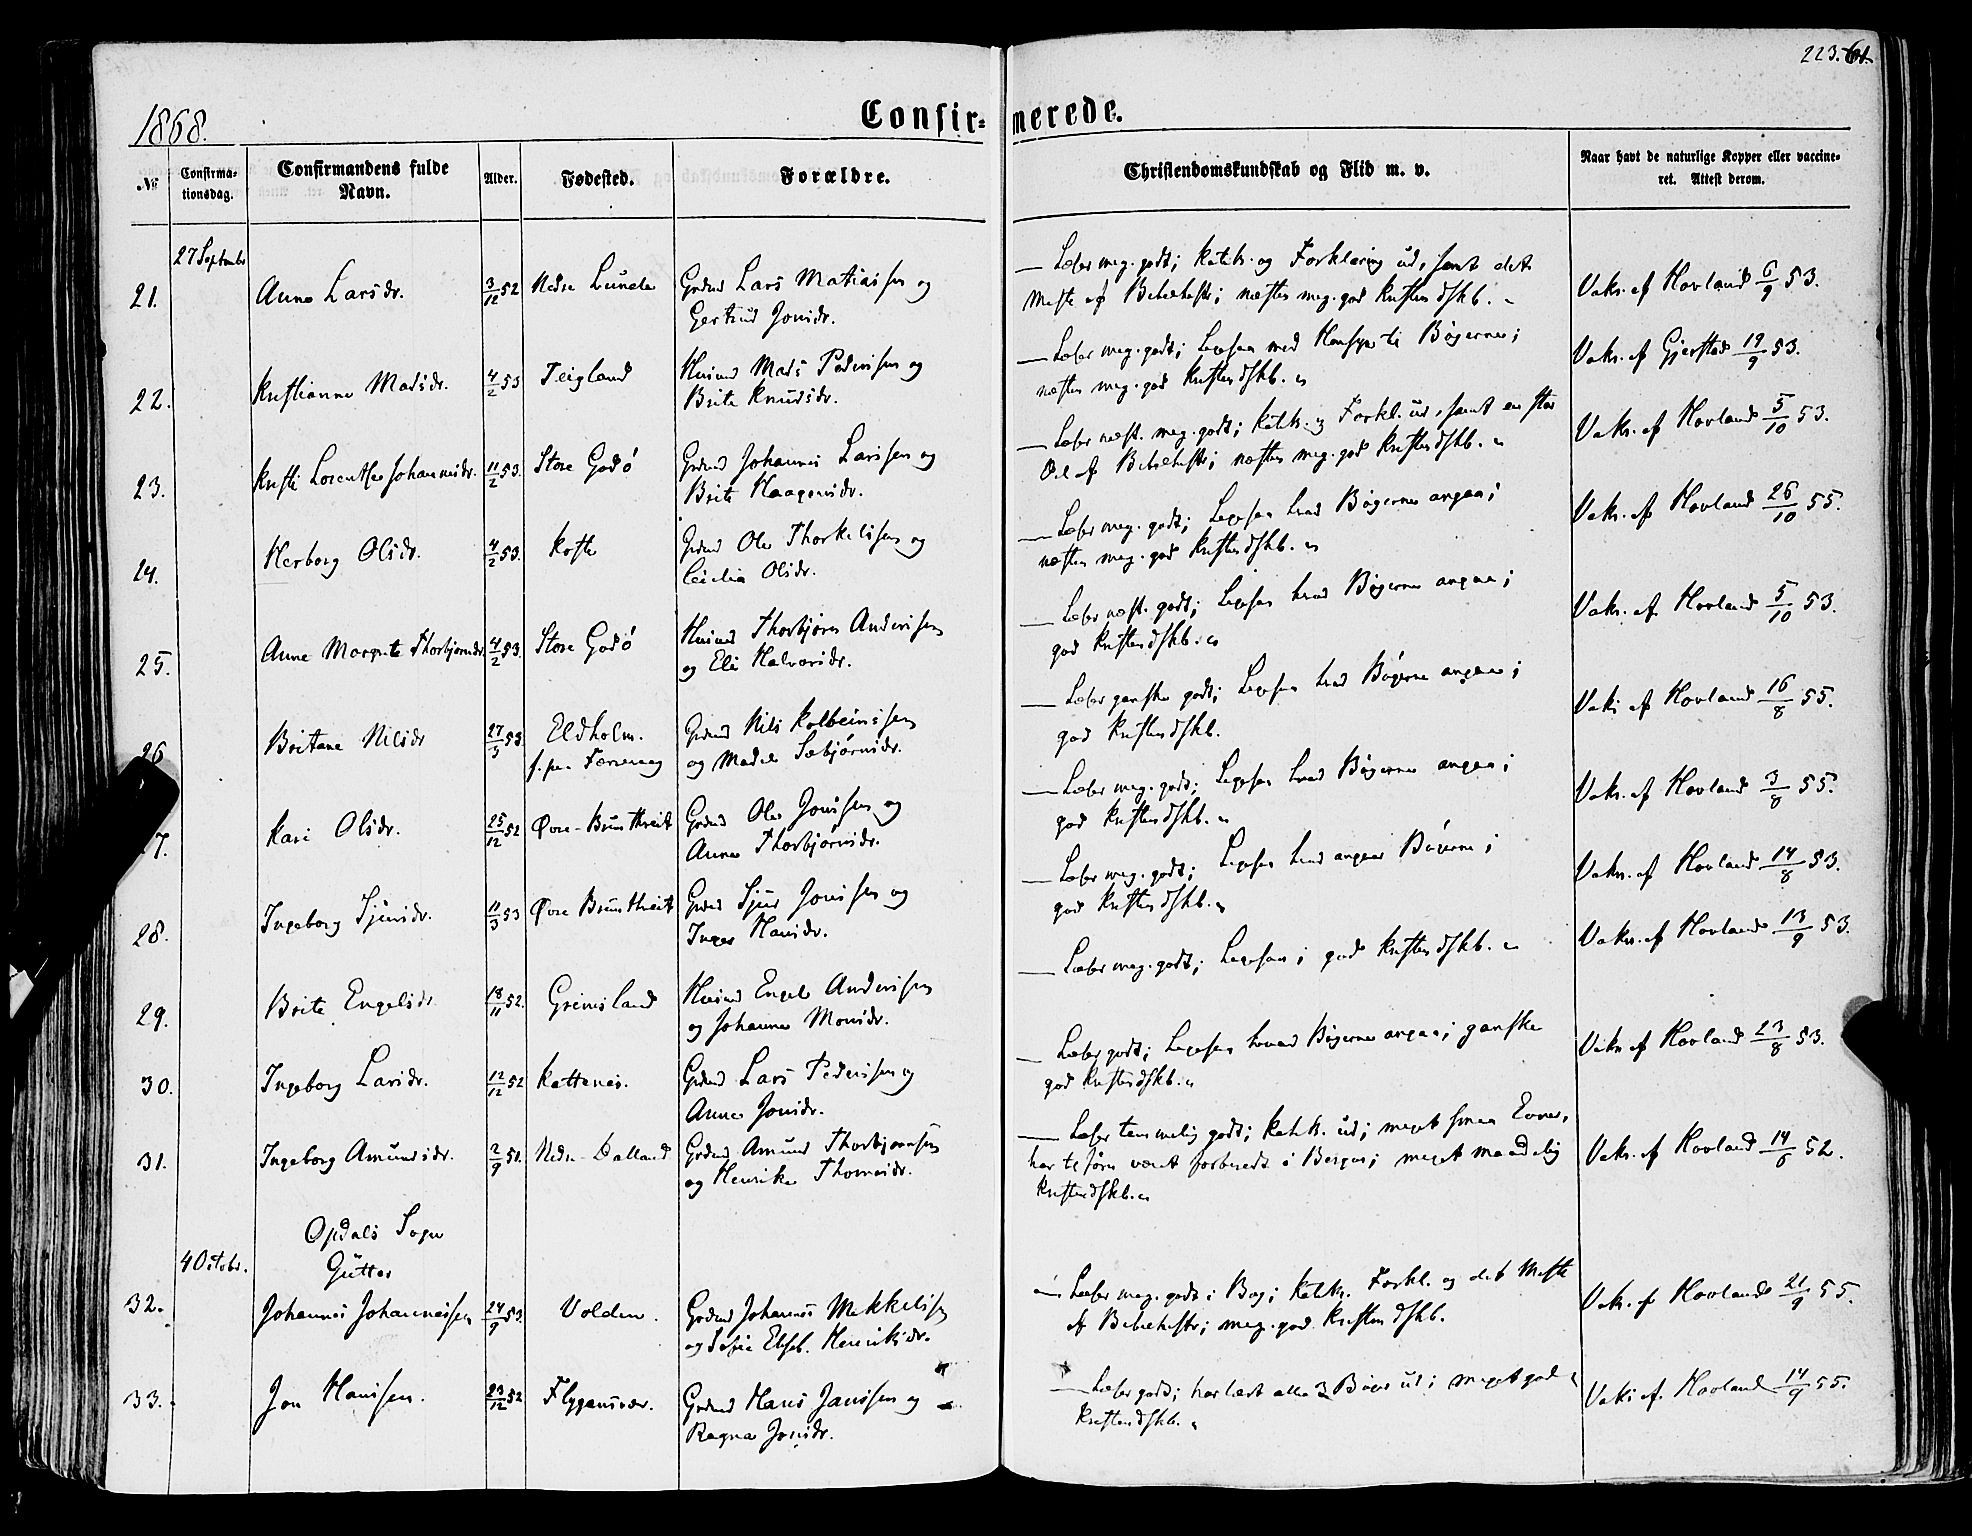 223. 61.
1868.
Confir-merede.
№
Confirma-
tionsdag.
Confirmandens fulde
Navn.
Alder.
Fødested.
Forældre.
Christendomskundskab og Flid m. v.
Naar havt de naturlige Kopper eller vaccine-
ret. Attest derom.
27 Septembr
21. Anna Larsdr. 3/12 52 Nedre Lunde Grdmd Lars Matiassen og
Gertrud Jonsdr.
— Læser meg. godt; Katek. og Forklaring ud, samt det
Meste af Bibelhistr; næsten meg. god Kristendskb.
Vaks. af Hovland 6/9 53.
22. Kristianna Madsdr. 4/2 53 Teigland Husmd Mads Pedersen og
Brita Knudsdr.
— Læser meg. godt; Lexsen med Hensyn til Bøgerne;
næsten meg. god Kristendskb.
Vaks. af Gjerstad 19/9 53.
23. Kristi Lorentse Johannesdr. 11/2 53. Store Godø Grdmd Johannes Larssen og
Brita Haagensdr.
— Læser næst. meg. godt; Katek. og Forkl. ud, samt en stor
Del af Bibelhistr; næsten meg. god Kristendskb.
Vaks. af Hovland 5/10 53.
24. Herborg Olsdr. 4/2 53. Kofte Grdmd Ole Thorkelssen og
Cecilia Olsdr.
— Læser meg. godt; Lexsen hvad Bøgerne angaa;
næsten meg. god Kristendskb.
Vaks. af Hovland 26/10 55.
25. Anne Margreta Thorbjørnsdr. 4/2 53. Store Godø Husmd Thorbjørn Anderssen
og Eli Halvorsdr.
— Læser næst. godt; Lexsen hvad Bøgerne angaa;
god Kristendskb.
Vaks. af Hovland 5/10 53.
26 Britane Nilsdr 27/3 53. Eldholm. Grdmd Nils Kolbeinssen
og Madel Sæbjørnsdr.
— Læser ganske godt; Lexsen hvad Bøgerne angaa;
god Kristendskb.
Vaks af Hovland 16/8 55.
7. Kari Olsdr. 25/12 52 Øvre-Bruntveit Grdmd Ole Jonssen og
Anna Thorbjørnsdr.
— Læser meg. godt; Lexsen hvad Bøgerne angaa;
god Kristendskb.
Vaks. af Hovland 3/8 55.
28. Ingeborg Sjursdr. 11/3 53 Øvre Bruntveit Grdmd Sjur Jonssen og
Inger Hansdr.
— Læser meg. godt; Lexsen hvad angaa Bøgerne;
god Kristendskb.
Vaks. af Hovland 14/8 53.
29. Brita Engelsdr 18/11 52. Grimsland Husmd Engel Anderssen
og Johanna Monsdr.
— Læser meg. godt; Lexsen; god Kristendskb.
Vaks. af Hovland 13/9 53.
30. Ingeborg Larsdr. 12/12 52 Kattenes. Grdmd Lars Pederssen og
Anna Jonsdr.
— Læser godt; Lexsen hvad Bøgerne angaa; ganske
god Kristendskb.
Vaks af Hovland 23/8 53.
31. Ingeborg Amundsdr. 2/9 51. Nedre-Dalland Grdmd Amund Thorbjørnssen
og Henrika Thomasdr.
— Læser temmelig godt; Katek. ud; meget smaa Evner,
har tilførn været forberedt i Bergen; meget maadelig
Kristendskb.
Vaks. af Hovland 14/6 52.
Opdals Sogn
4 Octobr. Gutter
32. Johannes Johannessen 24/9 53. Volden. Grdmd Johannes Mikkelssen
og Sofie Elseb. Henriksdr.
— Læser meg. godt i Bog; Katek. Forkl. og det Meste
af Bibelhistr; meg. god Kristendskb.
Vaks. af Hovland 21/9 55.
33. Jon Hanssen. 23/12 52 Flygansvær. Grdmd Hans Janssen og
Ragna Jonsdr.
— Læser godt; har læst alle 3 Bøger ud; meget god
Kristendskb.
Vaks af. Hovland 14/9 55.